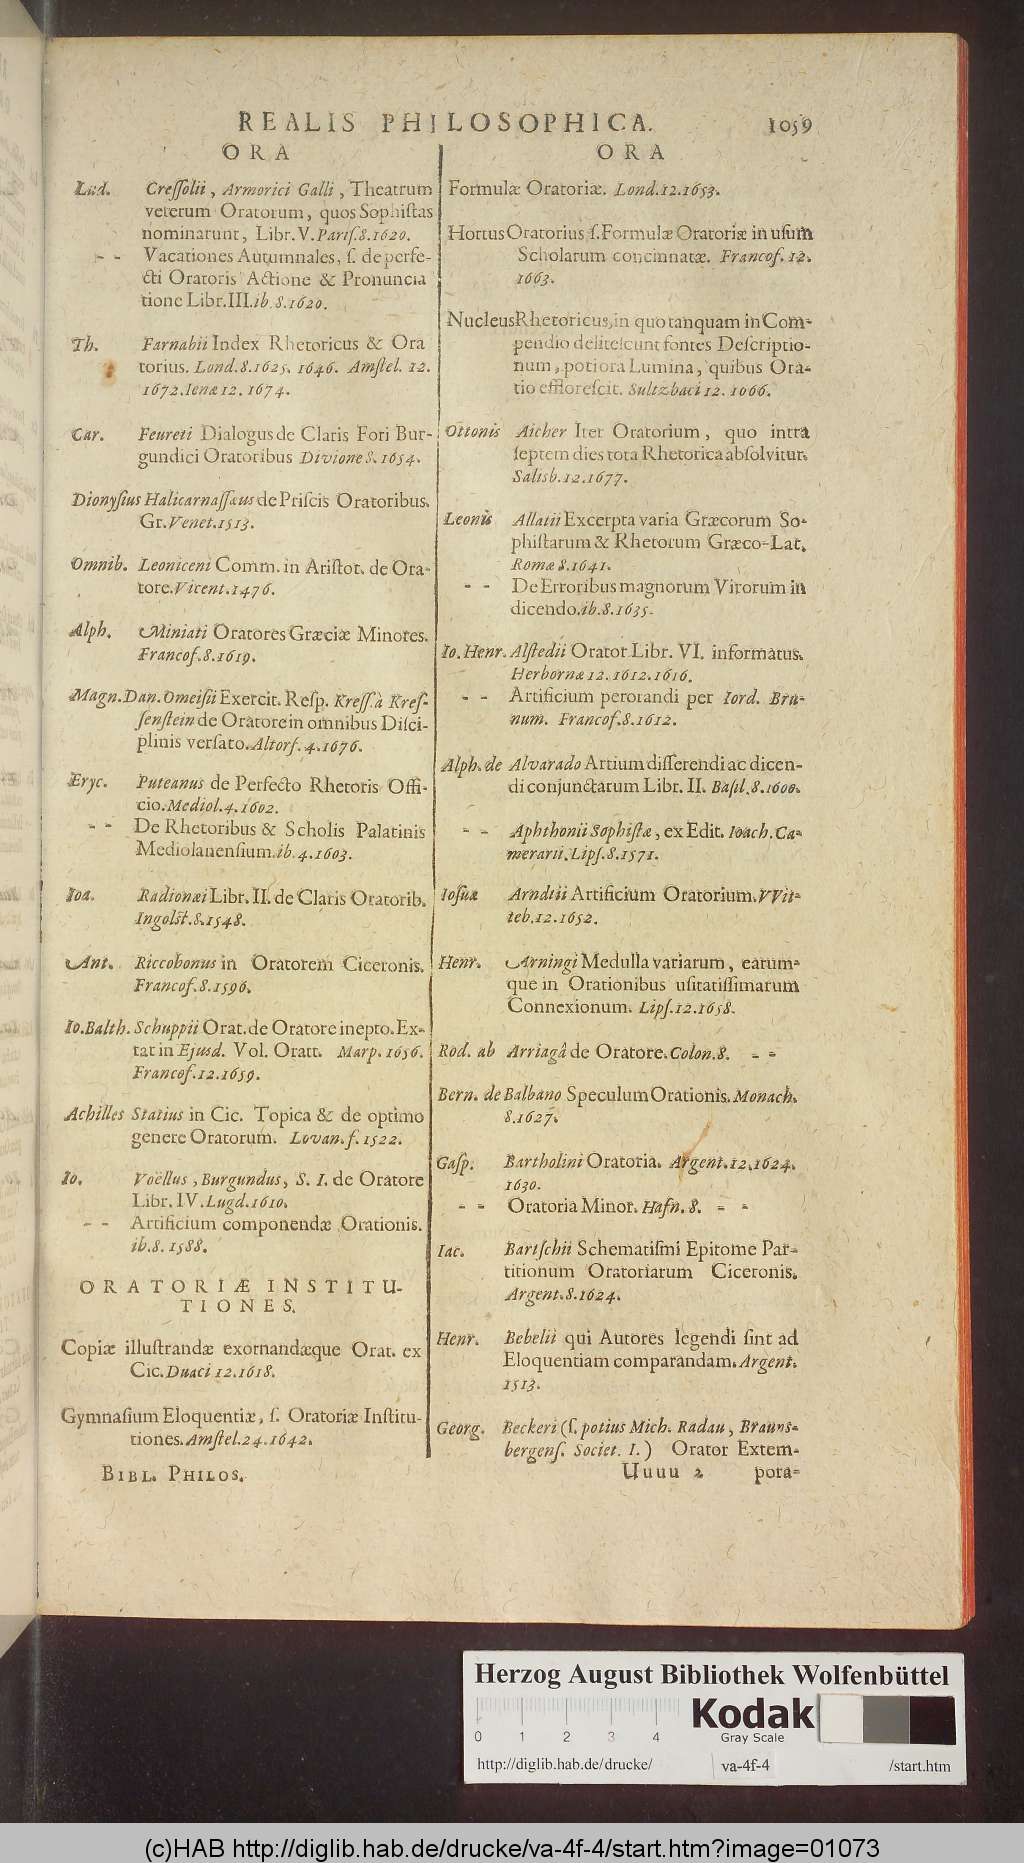 REALIS PHILOSOPHICA. 1059
ORA
Lud. Cresſolii, Armorici Galli, Theatrum
veterum Oratorum, quos Sophiſtas
nominarunt, Libr. V. Pariſ. 8. 1620.
- - Vacationes Autumnales, ſ. de perfe-
cti Oratoris Actione & Pronuncia
tione Libr. III. ib. 8. 1620.
Th. Farnabii Index Rhetoricus & Ora
torius. Lond. 8. 1625. 1646. Amſtel. 12.
1672. Ienæ 12. 1674.
Car. Feureti Dialogus de Claris Fori Bur-
gundici Oratoribus Divione 8. 1654.
Dionyſius Halicarnaſſæus de Priſcis Oratoribus.
Gr. Venet. 1513.
Omnib. Leoniceni Comm. in Ariſtot. de Ora-
tore. Vicent. 1476.
Alph. Miniati Oratores Græciæ Minores.
Francof. 8. 1619.
Magn. Dan. Omeiſii Exercit. Reſp. Kreſſ. à Kreſ-
ſenſtein de Oratore in omnibus Diſci-
plinis verſato. Altorf. 4. 1676.
Eryc. Puteanus de Perfecto Rhetoris Offi-
cio. Mediol. 4. 1602.
- - De Rhetoribus & Scholis Palatinis
Mediolanenſium. ib. 4. 1603.
Ioa. Radionæi Libr. II. de Claris Oratorib.
Ingolſt. 8. 1548.
Ant. Riccobonus in Oratorem Ciceronis.
Francof. 8. 1596.
Io. Balth. Schuppii Orat. de Oratore inepto. Ex-
tat in Ejusd. Vol. Oratt. Marp. 1656.
Francof. 12. 1659.
Achilles Statius in Cic. Topica & de optimo
genere Oratorum. Lovan. f. 1522.
Io. Voëllus, Burgundus, S. I. de Oratore
Libr. IV. Lugd. 1610.
- - Artificium componendæ Orationis.
ib. 8. 1588.
ORATORIÆ INSTITU-
TIONES.
Copiæ illuſtrandæ exornandæque Orat. ex
Cic. Duaci 12. 1618.
Gymnaſium Eloquentiæ, ſ. Oratoriæ Inſtitu-
tiones. Amſtel. 24. 1642.
BIBL. PHILOS.
ORA
Formulæ Oratoriæ. Lond. 12. 1653.
Hortus Oratorius ſ. Formulæ Oratoriæ in uſum
Scholarum concinnatæ. Francof. 12.
1663.
Nucleus Rhetoricus, in quo tanquam in Com-
pendio deliteſcunt fontes Deſcriptio-
num, potiora Lumina, quibus Ora-
tio effloreſcit. Sultzbaci 12. 1066.
Ottonis Aicher Iter Oratorium, quo intra
ſeptem dies tota Rhetorica abſolvitur.
Salisb. 12. 1677.
Leonis Allatii Excerpta varia Græcorum So-
phiſtarum & Rhetorum Græco-Lat.
Romæ 8. 1641.
- - De Erroribus magnorum Virorum in
dicendo. ib. 8. 1635.
Io. Henr. Alſtedii Orator Libr. VI. informatus.
Herbornæ 12. 1612. 1616.
- - Artificium perorandi per Iord. Bru-
num. Francof. 8. 1612.
Alph. de Alvarado Artium diſſerendi ac dicen-
di conjunctarum Libr. II. Baſil. 8. 1600.
- - Aphthonii Sophiſtæ, ex Edit. Ioach. Ca-
merarii. Lipſ. 8. 1571.
Ioſuæ Arndtii Artificium Oratorium. VVit-
teb. 12. 1652.
Henr. Arningi Medulla variarum, earum-
que in Orationibus uſitatiſſimarum
Connexionum. Lipſ. 12. 1658.
Rod. ab Arriagâ de Oratore. Colon. 8. - -
Bern. de Balbano Speculum Orationis. Monach.
8. 1627.
Gaſp. Bartholini Oratoria. Argent. 12. 1624.
1630.
- - Oratoria Minor. Hafn. 8. - -
Iac. Bartſchii Schematiſmi Epitome Par-
titionum Oratoriarum Ciceronis.
Argent. 8. 1624.
Henr. Bebelii qui Autores legendi ſint ad
Eloquentiam comparandam. Argent.
1513.
Georg. Beckeri (ſ. potius Mich. Radau, Bruns-
bergenſ. Societ. I.) Orator Extem-
Uuuu 2 pora-
Herzog August Bibliothek Wolfenbüttel
0 1 2 3 4
Kodak
Gray Scale
http://diglib.hab.de/drucke/ va-4f-4 /start.htm
(c)HAB http://diglib.hab.de/drucke/va-4f-4/start.htm?image=01073